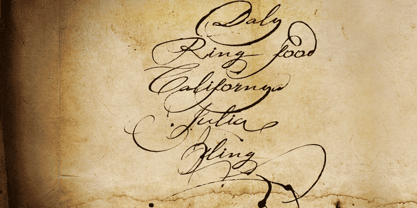 Daly
Ring food
Californya
Julia
Fling